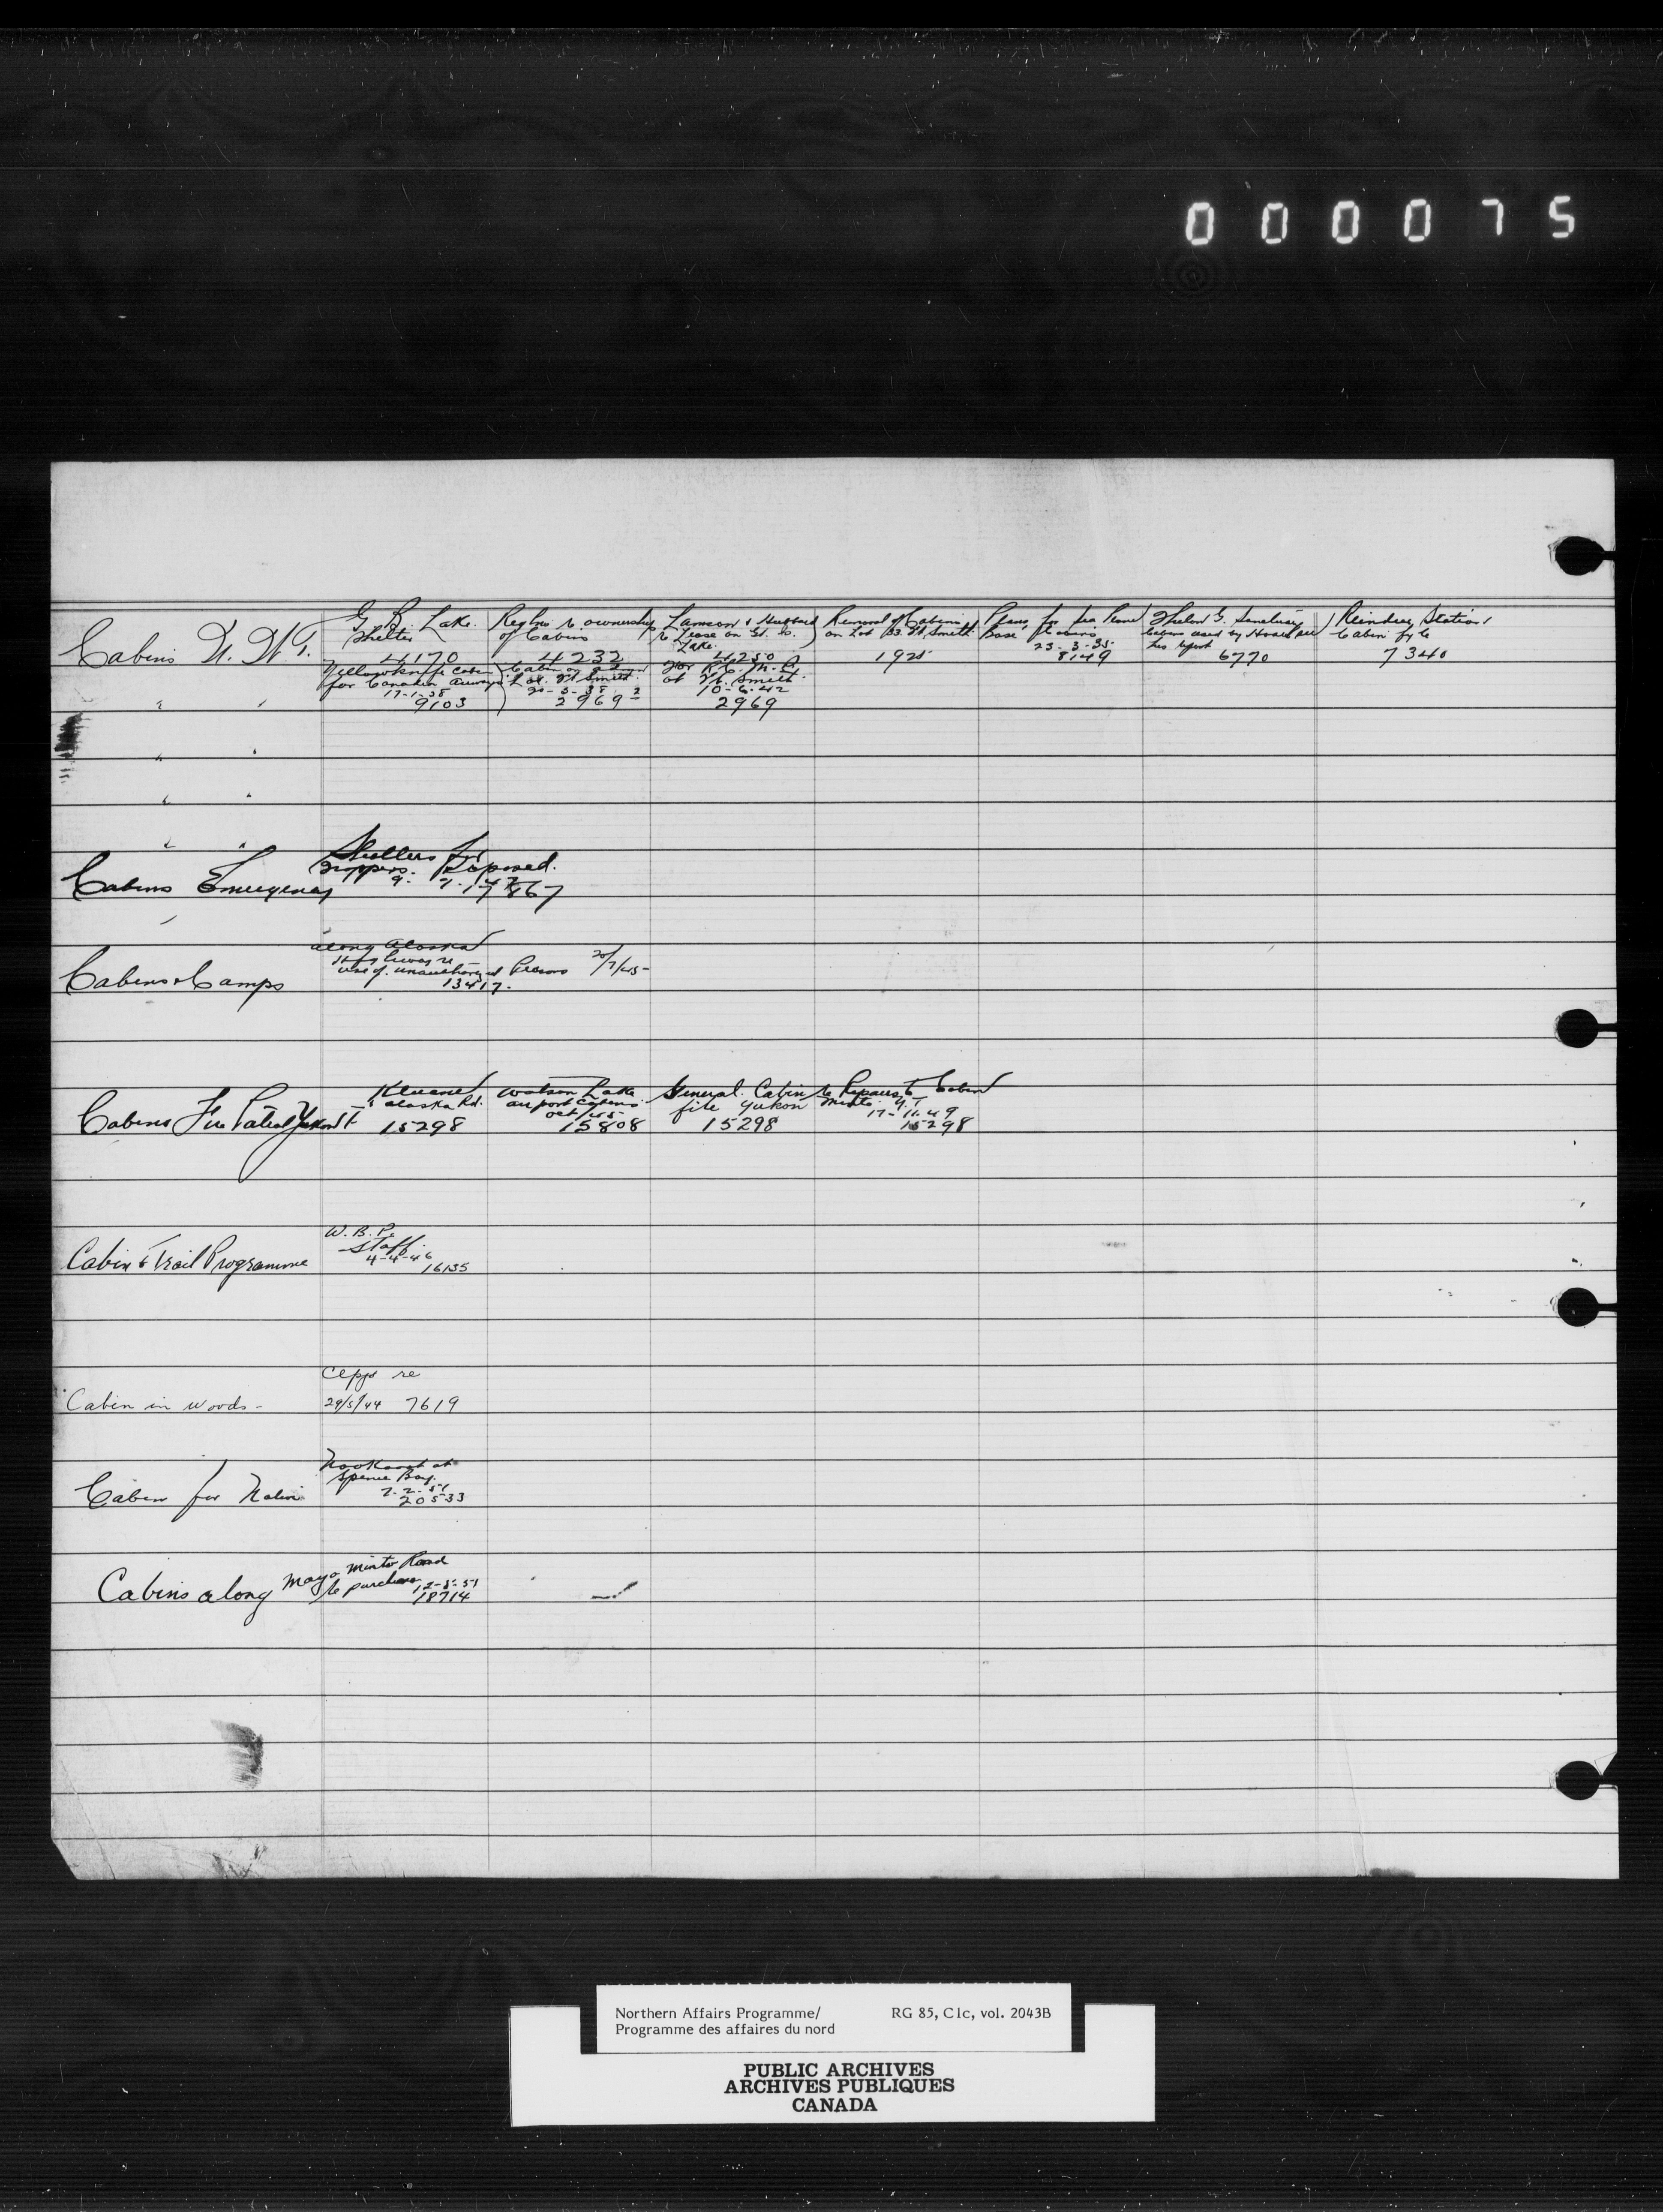 000075
Cabins N.W.T.
G. B. Lake.
Shelter
4170
Regtns to ownership
of Cabins
4232
Lamson & Hubbard
to Lease on Gt. S.
Lake.
4250
Removal of Cabins
on Lot 33. Ft. Smith
1925
Base
23-3-35
8149
Thelon G. Sanctuary
Cabins used by
his report
6770
Reindeer Station
Cabin
7340
Yellowknife Cabin
for Canadian Airways
17-1-38
9103
Cabin on
Lot. Ft Smith.
20-5-38
2969
For R.C.M.P.
at Ft. Smith.
10-6-42
2969
Cabins Emergency
Shelters for
Trappers. Proposed.
Cabins & Camps
along Alaska
Highway re
use of. unauthorized Persons
20/7/45
13417.
Cabins Fire Patrol Yukon T
Kluane
Alaska Rd.
15298
Watson Lake
airport cabins.
Oct/45
15808
General. Cabin
file Yukon
15298
to Repairs to Cabin
Minto. Y.T
17-11-49
15298
Cabin & Trail Programme
W. B. P.
Staff.
4-4-46
16135
Cabin in woods -
Clpgs re
29/5/44 7619
Cabin for Native
at
Spence Bay.
2-2-51
20533
Cabins along
Mayo Minto Road
to purchase
12-5-51
18714
Northern Affairs Programme/
Programme des affaires du nord
RG 85, C1c, vol. 2043B
PUBLIC ARCHIVES
ARCHIVES PUBLIQUES
CANADA